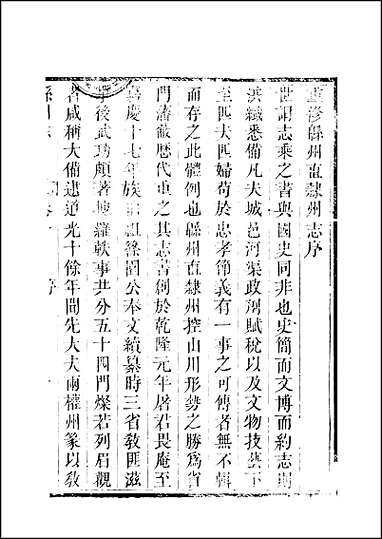 重修緜州直隸州志序
世謂志乘之書與國史同非也史簡而文博而約志則
洪纖悉備凡夫城邑河渠政刑賦稅以及文物技藝下
至匹夫匹婦苟於忠孝節義有一事之可傳者無不輯
而存之此體例也緜州直隸州控山川形勢之勝爲省
門藩蔽歷代重之其志書創於乾隆元年屠君畏庵至
嘉慶十七年族祖 圃公奉文續纂時三省敎匪滋
後武功頗著搜羅軼事共分五十四門燦若列眉觀
者咸稱大備逮道光十餘年間先大夫兩權州篆以敎